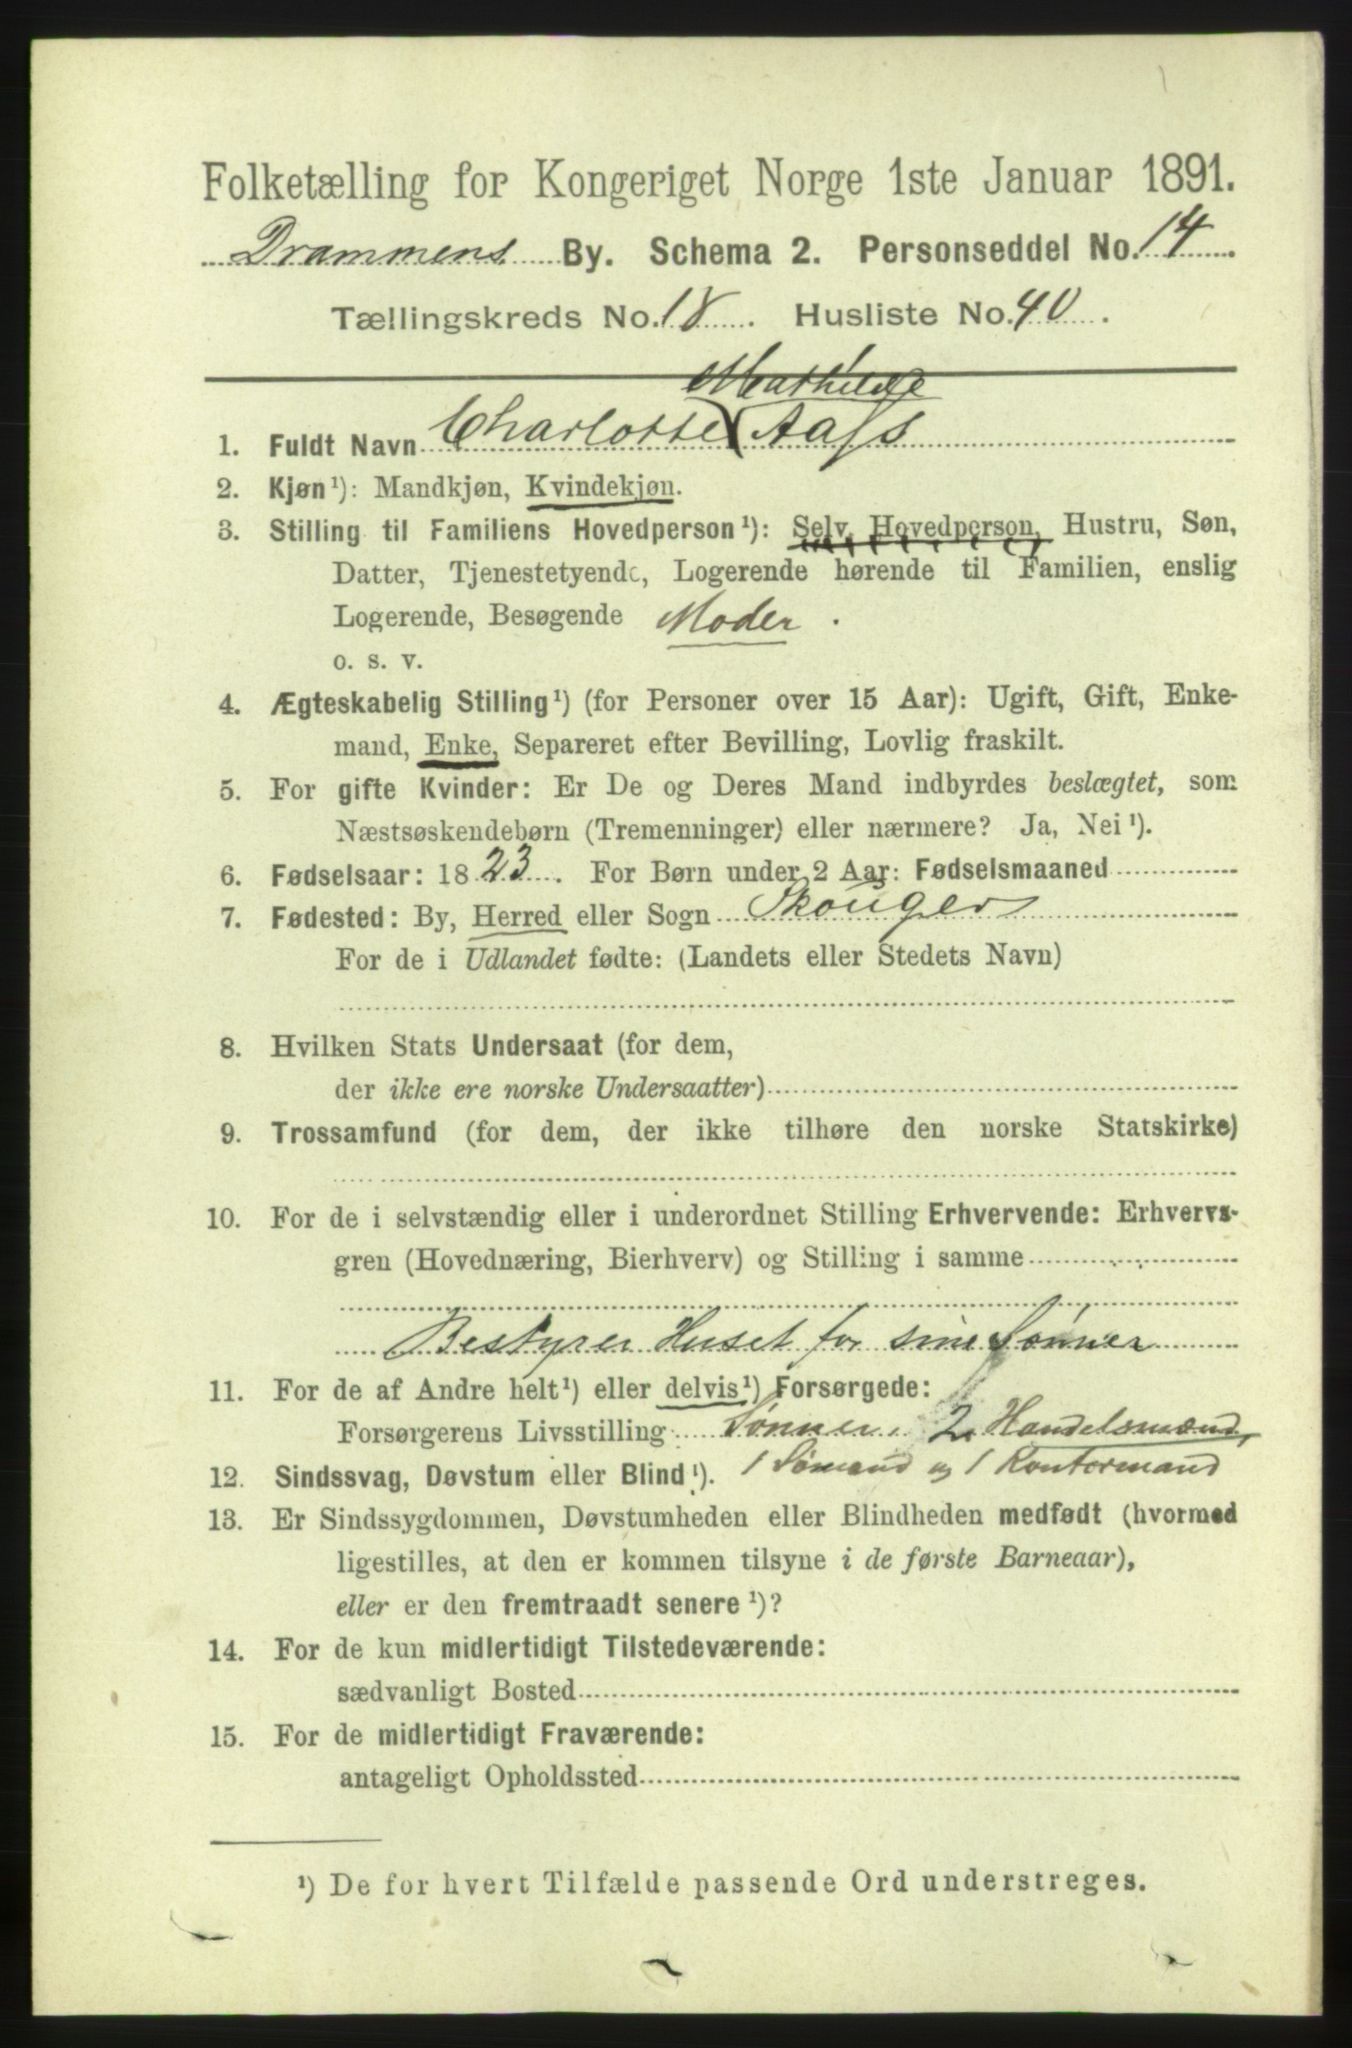 Folketælling for Kongeriget Norge 1ste Januar 1891.
Drammens By. Schema 2. Personseddel No. 14
Tællingskreds No. 18. Husliste No. 40.
Mathilde
1. Fuldt Navn Charlotte Aass
2. Kjøn¹): Mandkjøn, Kvindekjøn.
3. Stilling til Familiens Hovedperson¹): Selv Hovedperson, Hustru, Søn,
Datter, Tjenestetyende, Logerende hørende til Familien, enslig
Logerende, Besøgende Moder.
o. s. v.
4. Ægteskabelig Stilling¹) (for Personer over 15 Aar): Ugift, Gift, Enke-
mand, Enke, Separeret efter Bevilling, Lovlig fraskilt.
5. For gifte Kvinder: Er De og Deres Mand indbyrdes beslægtet, som
Næstsøskendebørn (Tremenninger) eller nærmere? Ja, Nei¹).
6. Fødselsaar: 1823. For Børn under 2 Aar: Fødselsmaaned
7. Fødested: By, Herred eller Sogn Skouger
For de i Udlandet fødte: (Landets eller Stedets Navn)
8. Hvilken Stats Undersaat (for dem,
der ikke ere norske Undersaatter)
9. Trossamfund (for dem, der ikke tilhøre den norske Statskirke)
10. For de i selvstændig eller i underordnet Stilling Erhvervende: Erhvervs-
gren (Hovednæring, Bierhverv) og Stilling i samme
Bestyrer Huset for sine Sønner
11. For de af Andre helt¹) eller delvis¹) Forsørgede:
Forsørgerens Livsstilling Sønner. 2 Handelsmænd,
1 Sømand og 1 Kontormand
12. Sindssvag, Døvstum eller Blind¹).
13. Er Sindssygdommen, Døvstumheden eller Blindheden medfødt (hvormed
ligestilles, at den er kommen tilsyne i de første Barneaar),
eller er den fremtraadt senere¹)?
14. For de kun midlertidigt Tilstedeværende:
sædvanligt Bosted
15. For de midlertidigt Fraværende:
antageligt Opholdssted
¹) De for hvert Tilfælde passende Ord understreges.